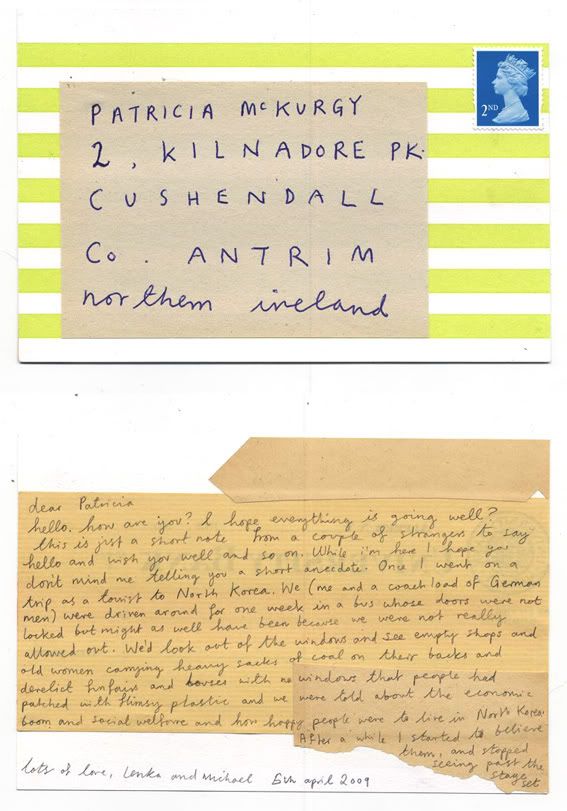 PATRICIA McKURGY
2, KILNADORE PK.
CUSHENDALL
Co. ANTRIM
northern ireland
2ND
dear Patricia
hello. how are you? I hope everything is going well?
this is just a short note from a couple of strangers to say
hello and wish you well and so on. While i'm here I hope you
don't mind me telling you a short anecdote. Once I went on a
trip as a tourist to North Korea. We (me and a coach load of German
men) were driven around for one week in a bus whose doors were not
locked but might as well have been because we were not really
allowed out. We'd look out of the windows and see empty shops and
old women carrying heavy sacks of coal on their backs and
derelict funfairs and houses with no windows that people had
patched with flimsy plastic and we were told about the economic
boom and social welfare and how happy people were to live in North Korea.
After a while I started to believe
them, and stopped
seeing past the
stage
set
lots of love, Lenka and Michael 6th april 2009